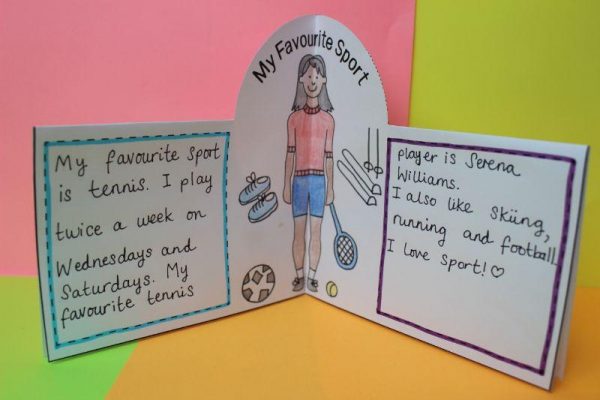 My Favourite Sport
My favourite sport
is tennis. I play
twice a week on
Wednesdays and
Saturdays. My
favourite tennis
player is Serena
Williams.
I also like skiing,
running and football.
I love sport!♡